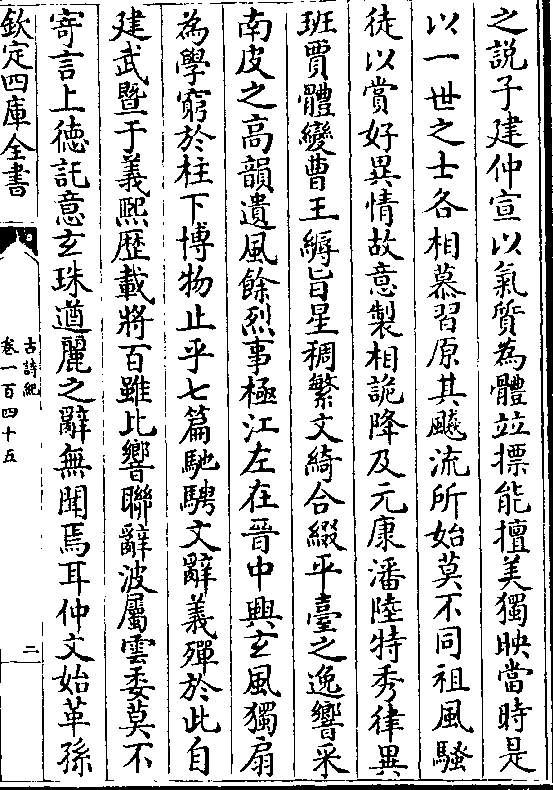 之説子建仲宣以氣質為體並摽能擅美獨映當時是
以一世之士各相慕習原其飇流所始莫不同祖風騷
徒以賞好異情故意製相詭降及元康潘陸特秀律異
班賈體變曹王縟旨星稠繁文綺合綴平臺之逸響采
南皮之高韻遺風餘烈事極江左在晉中興玄風獨扇
為學窮於柱下博物止乎七篇馳騁文辭義殫於此自
建武暨于義熙歴載將百雖比響聯辭波屬雲委莫不
寄言上徳託意玄珠遒麗之辭無聞焉耳仲文始革孫
欽定四庫全書
古詩紀
卷一百四十五
二